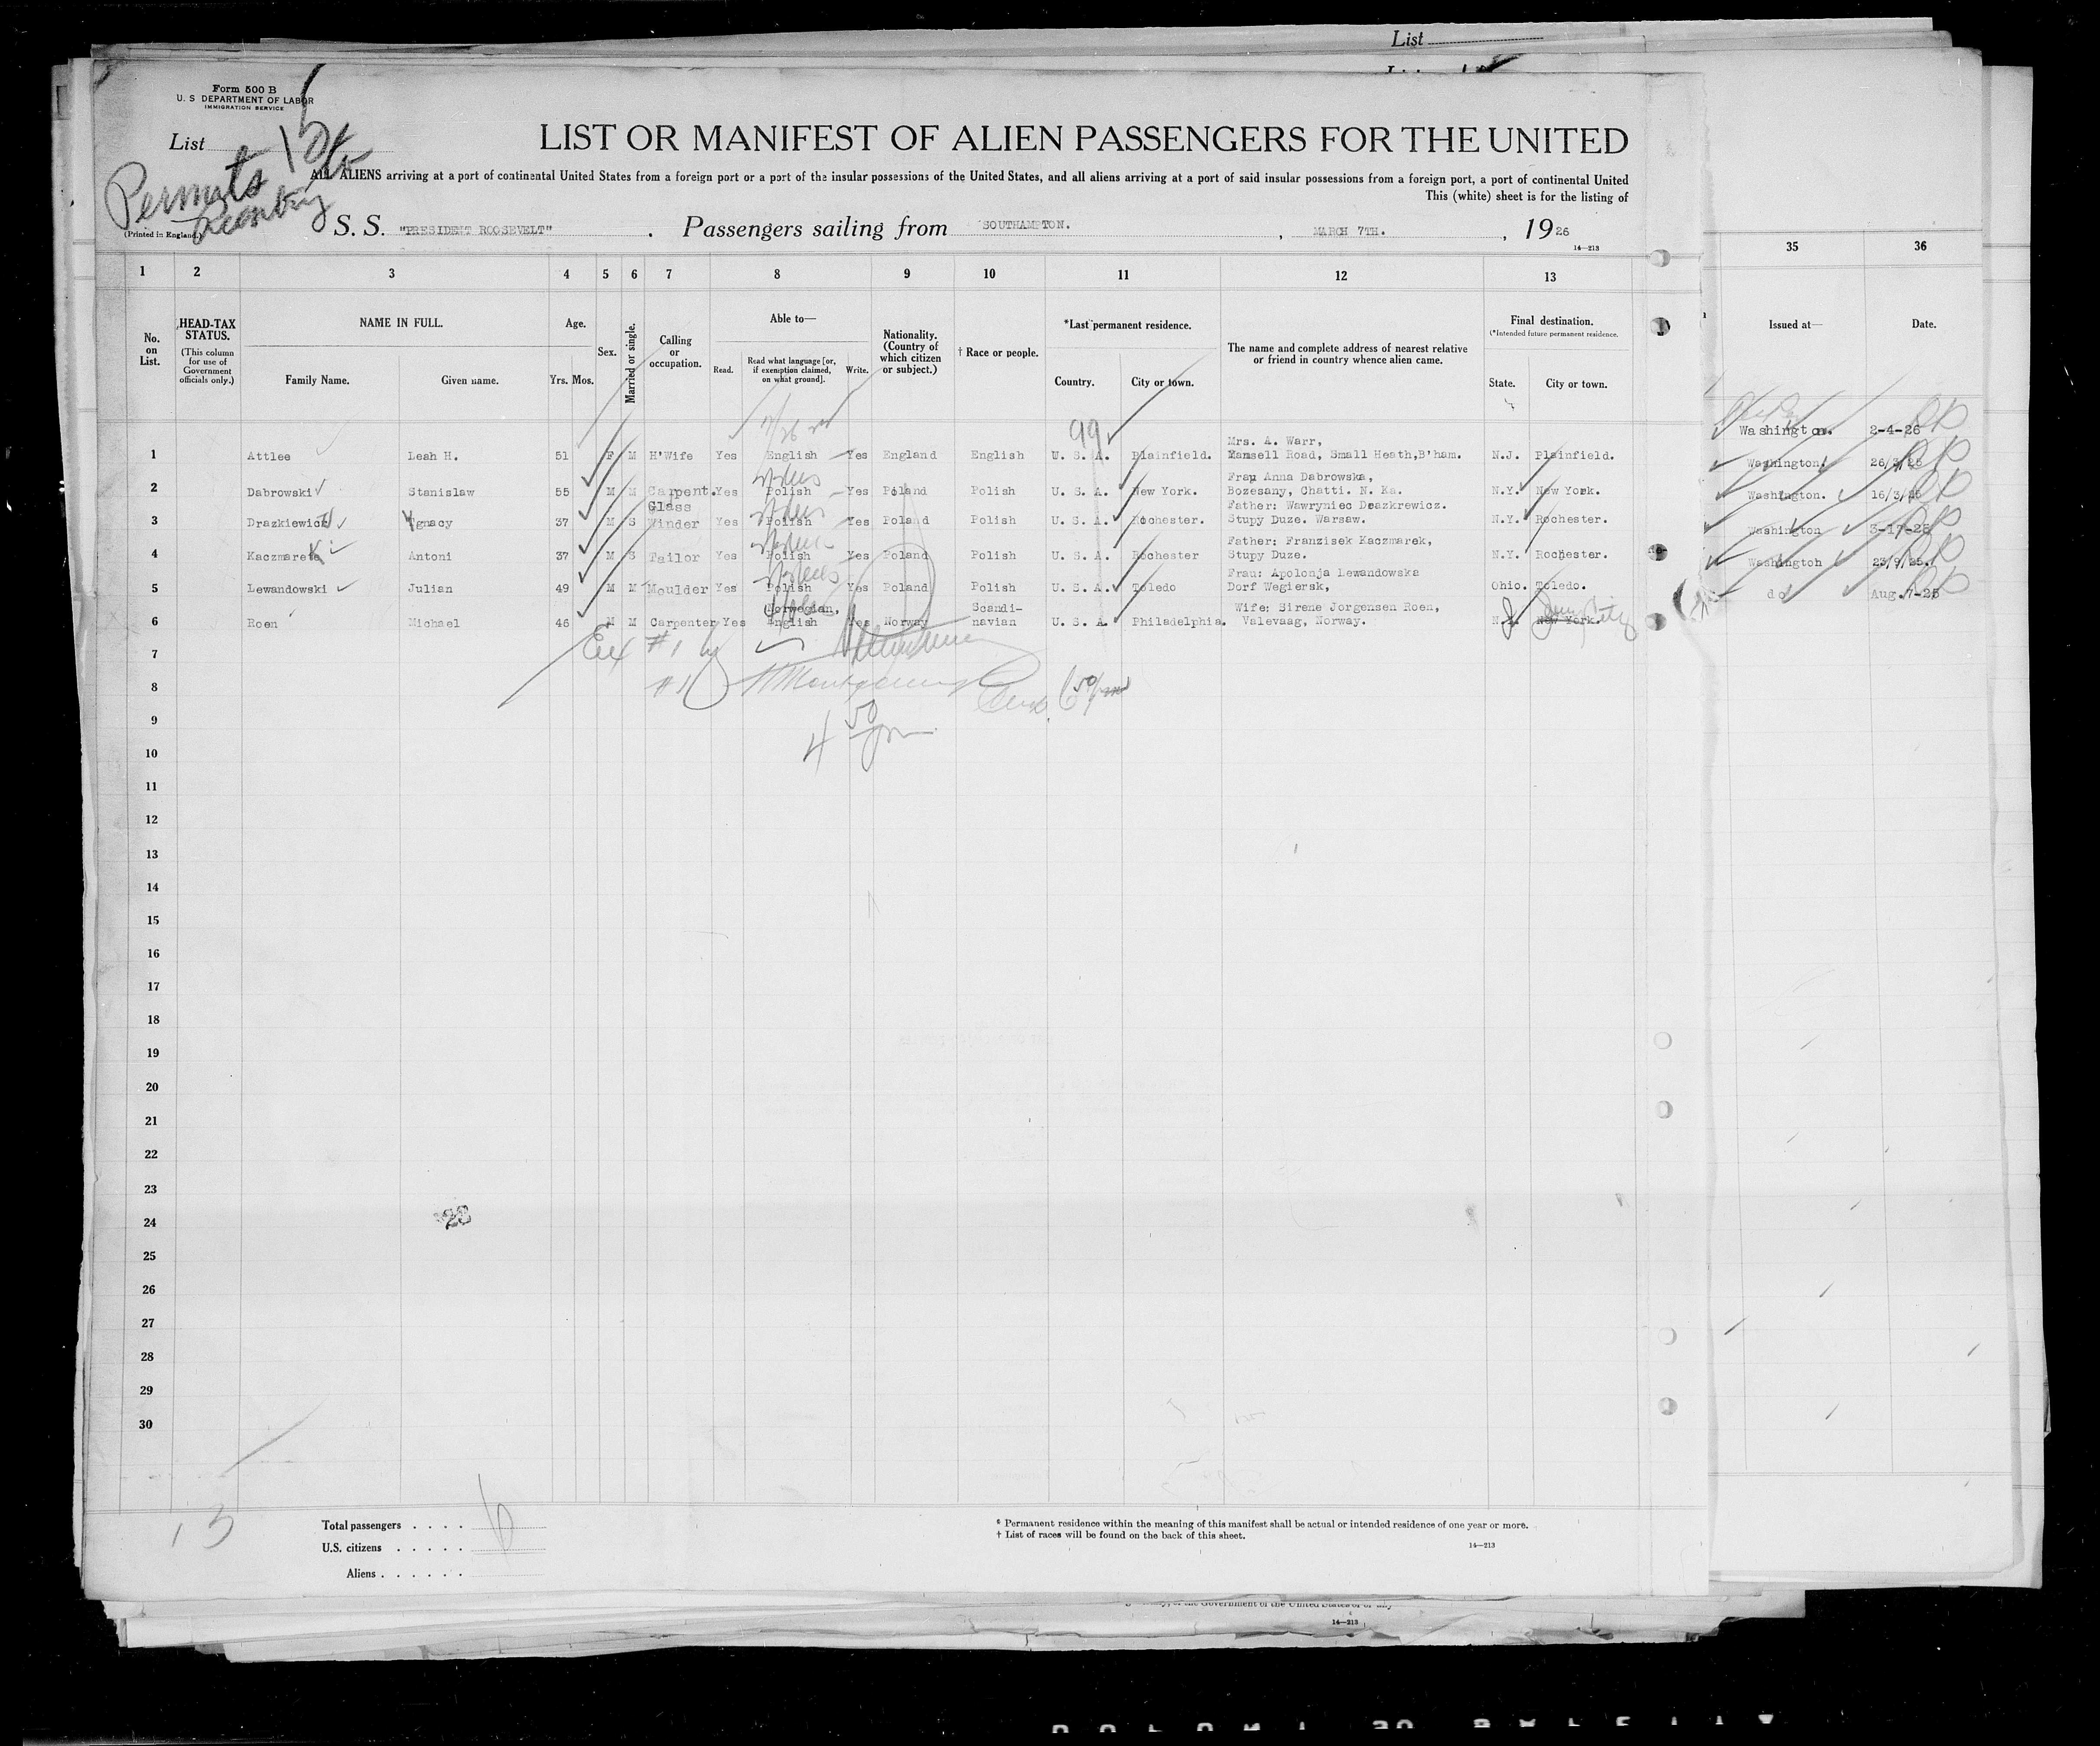 List
Form 500 B
U. S DEPARTMENT OF LABOR
IMMIGRATION SERVICE
List 15
Permits to
Reentry
LIST OR MANIFEST OF ALIEN PASSENGERS FOR THE UNITED
ALL ALIENS arriving at a port of continental United States from a foreign port or a port of the insular possessions of the United States, and all aliens arriving at a port of said insular possessions from a foreign port, a port of continental United
This (white) sheet is for the listing of
(Printed in England.)
S. S. "PRESIDENT ROOSEVELT" . Passengers sailing from SOUTHAMPTON. , MARCH 7TH. , 1926
14—213
1 2 3 4 5 6 7 8 9 10 11 12 13
35 36
No. on List.
HEAD-TAX STATUS.
(This column for use of Government officials only.)
NAME IN FULL.
Family Name. Given name.
Age.
Yrs. Mos.
Sex.
Married or single.
Calling or occupation.
Able to—
Read. Read what language [or, if exemption claimed, on what ground]. Write.
Nationality. (Country of which citizen or subject.)
† Race or people.
*Last permanent residence.
Country. City or town.
The name and complete address of nearest relative or friend in country whence alien came.
Final destination.
(*Intended future permanent residence.
State. City or town.
Issued at— Date.
99
Washington. 2-4-26
Mrs. A. Warr,
1 Attlee Leah H. 51 F M H'Wife Yes English Yes England English U. S. A. Plainfield. Mansell Road, Small Heath,B'ham. N.J. Plainfield.
Washington. 26/3/25
Frau Anna Dabrowska,
2 Dabrowski Stanislaw 55 M M Carpent. Yes Polish Yes Poland Polish U. S. A. New York. Bozesany, Chatti. N. Ka. N.Y. New York.
Washington. 16/3/25
Glass Father: Wawryniec Drazkrewicz.
3 Drazkiewicz Ygnacy 37 M S Winder Yes Polish Yes Poland Polish U. S. A. Rochester. Stupy Duze. Warsaw. N.Y. Rochester.
Washington 3-17-25
Father: Franzisek Kaczmarek,
4 Kaczmarek Antoni 37 M S Tailor Yes Polish Yes Poland Polish U. S. A. Rochester Stupy Duze. N.Y. Rochester.
Washington 23/9/25.
Frau: Apolonja Lewandowska
5 Lewandowski Julian 49 M M Moulder Yes Polish Yes Poland Polish U. S. A. Toledo Dorf Wegiersk, Ohio. Toledo.
do Aug.7-25
Norwegian, Scandi- Wife: Sirene Jorgensen Roen,
6 Roen Michael 46 M M Carpenter Yes English Yes Norway navian U. S. A. Philadelphia. Valevaag, Norway. N.J. New York. Jersey City
7
#1 by
8
#1
9
4 50
10
11
12
13
14
15
16
17
18
19
20
21
22
23
24
25
26
27
28
29
30
13
Total passengers . . . . 6
U.S. citizens . . . . .
Aliens . . . . . .
* Permanent residence within the meaning of this manifest shall be actual or intended residence of one year or more.
† List of races will be found on the back of this sheet.
14—213
14—213